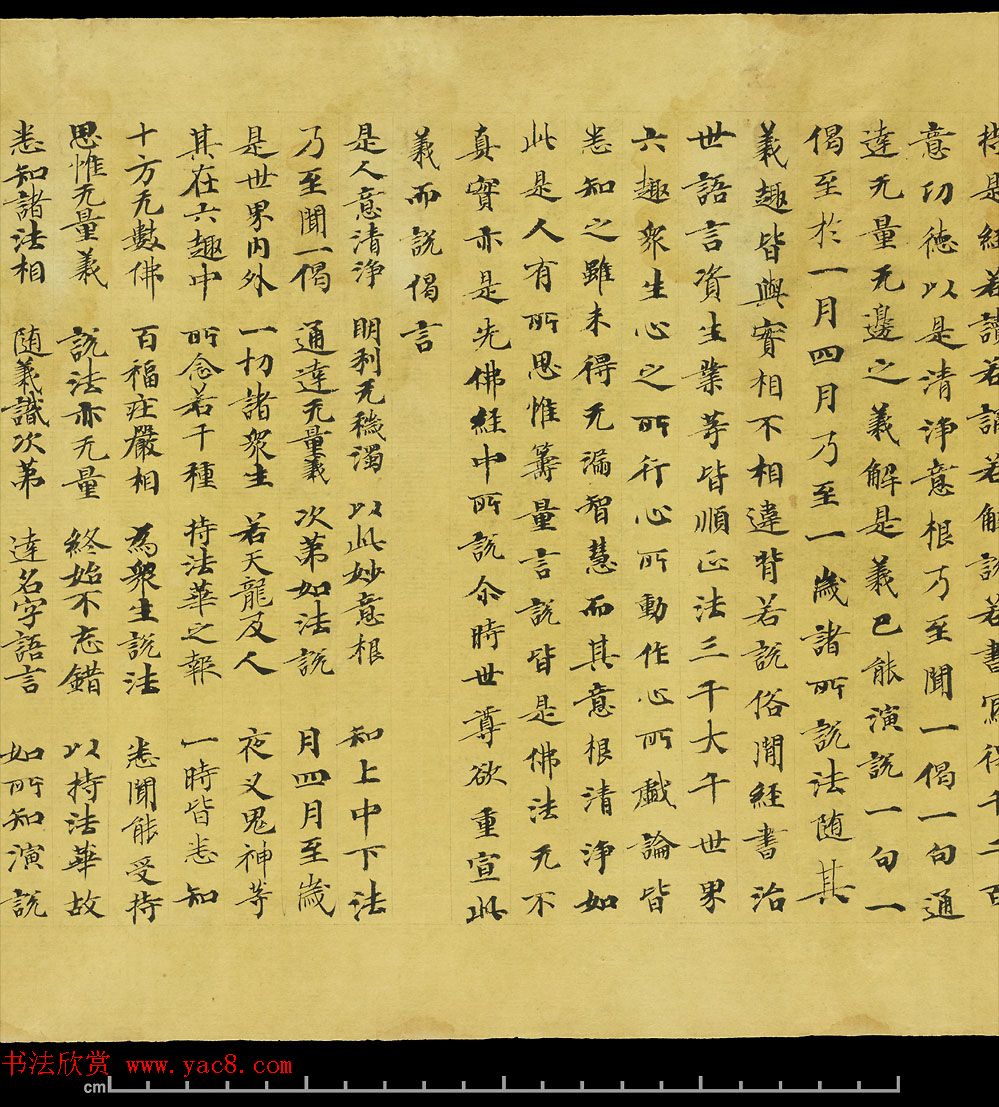 持是經若讀若誦若解說若書寫得千二百
意功德以是清淨意根乃至聞一偈一句通
達无量无邊之義解是義已能演說一句一
偈至於一月四月乃至一歲諸所說法随其
義趣皆與實相不相違背若說俗閒經書治
世語言資生業等皆順正法三千大千世界
六趣衆生心之所行心所動作心所戲論皆
悉知之雖未得无漏智慧而其意根清淨如
此是人有所思惟籌量言說皆是佛法无不
真實亦是先佛經中所說尒時世尊欲重宣此
義而說偈言
是人意清淨 明利无穢濁 以此妙意根 知上中下法
乃至聞一偈 通達无量義 次第如法說 月四月至歲
是世界內外 一切諸衆生 若天龍及人 夜叉鬼神等
其在六趣中 所念若干種 持法華之報 一時皆悉知
十方无數佛 百福莊嚴相 為衆生說法 悉聞能受持
思惟无量義 說法亦无量 終始不忘錯 以持法華故
悉知諸法相 随義識次第 達名字語言 如所知演說
书法欣赏 www.yac8.com
cm